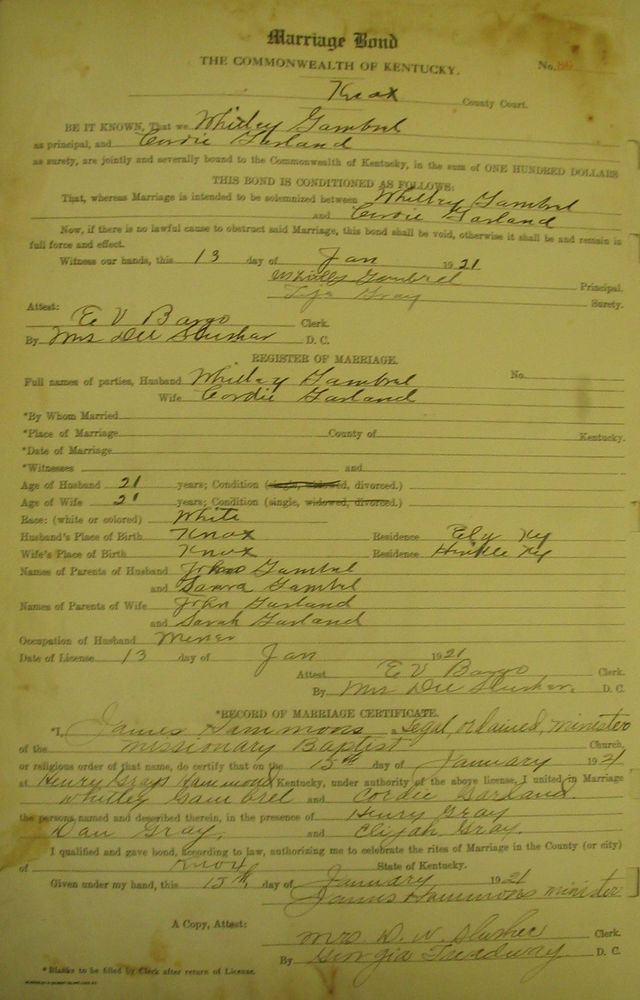 Marriage Bond
THE COMMONWEALTH OF KENTUCKY.
No.
Knox County Court.
BE IT KNOWN, That we Whitley Gambrel
as principal, and Cordie Garland
as surety, are jointly and severally bound to the Commonwealth of Kentucky, in the sum of ONE HUNDRED DOLLARS
THIS BOND IS CONDITIONED AS FOLLOWS:
That, whereas Marriage is intended to be solemnized between Whitley Gambrel
and Cordie Garland
Now, if there is no lawful cause to obstruct said Marriage, this bond shall be void, otherwise it shall be and remain in
full force and effect.
Witness our hands, this 13 day of Jan 1921
Gambrel Principal.
Gray Surety.
Attest:
E V Bargo Clerk.
By Mrs Dee Slusher D. C.
REGISTER OF MARRIAGE.
Full names of parties, Husband Whitley Gambrel No.
Wife Cordie Garland
*By Whom Married
*Place of Marriage County of Kentucky.
*Date of Marriage
*Witnesses and
Age of Husband 21 years; Condition (single, widowed, divorced.)
Age of Wife 21 years; Condition (single, widowed, divorced.)
Race: (white or colored) White
Husband's Place of Birth Knox Residence Ely Ky
Wife's Place of Birth Knox Residence Hinkle Ky
Names of Parents of Husband John Gambrel
and Gambrel
Names of Parents of Wife John Garland
and Sarah Garland
Occupation of Husband Miner
Date of License 13 day of Jan 1921
Attest E V Bargo Clerk.
By Mrs Dee Slusher D. C.
*RECORD OF MARRIAGE CERTIFICATE.
*I, James Hammons a Legal, ordained, minister
of the missionary Baptist Church,
or religious order of that name, do certify that on the 15th day of January 1921
at Henry Grays Hammond Kentucky, under authority of the above license, I united in Marriage
Whitley Gambrel and Cordie Garland
the persons named and described therein, in the presence of Henry Gray
Dan Gray, and Elijah Gray.
I qualified and gave bond, according to law, authorizing me to celebrate the rites of Marriage in the County (or city)
of Knox State of Kentucky.
Given under my hand, this 15th day of January 1921
James Hammons minister
A Copy, Attest:
Mrs. D. W. Slusher Clerk.
By Georgia Treadway D. C.
*Blanks to be filled by Clerk after return of License.